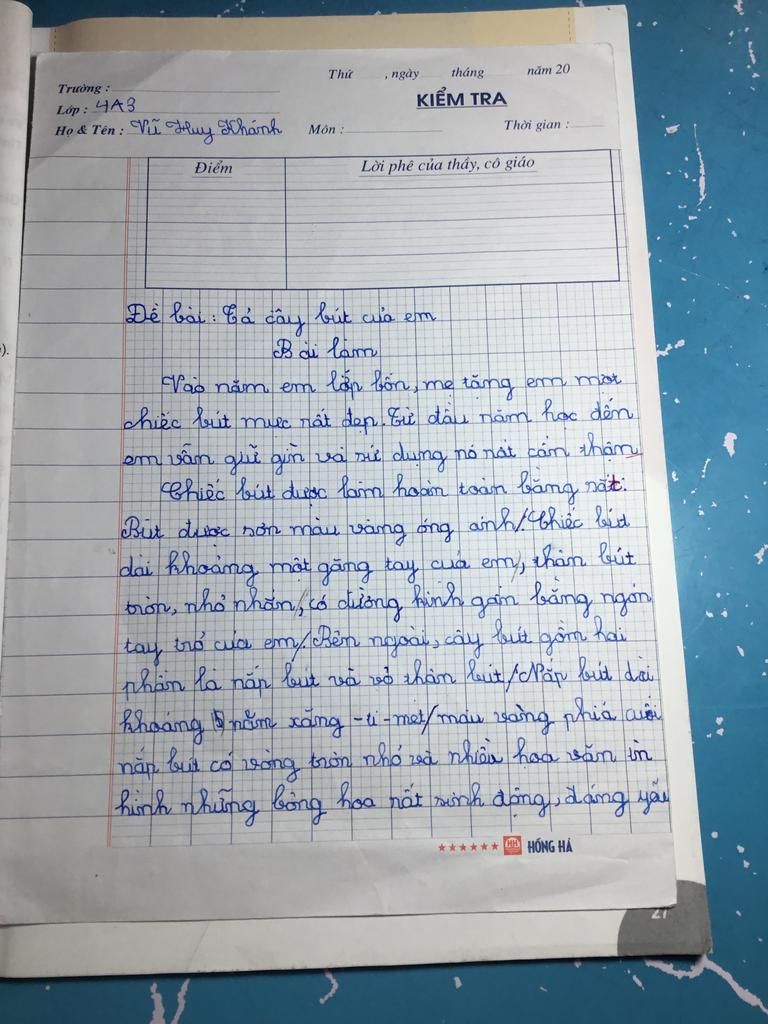 Thứ , ngày tháng năm 20
Trường :
Lớp : 4A3
KIỂM TRA
Họ & Tên : Vũ Huy Khánh Môn : Thời gian :
Điểm Lời phê của thầy, cô giáo
Đề bài : Tả cây bút của em
Bài làm
Vào năm em lớp bốn, mẹ tặng em một
chiếc bút mực rất đẹp. Từ đầu năm học đến
em vẫn giữ gìn và sử dụng nó rất cẩn thận
Chiếc bút được làm hoàn toàn bằng sắt.
Bút được sơn màu vàng óng ánh/. Chiếc bút
dài khoảng một găng tay của em/, thân bút
tròn, nhỏ nhắn/, có đường kính gần bằng ngón
tay trỏ của em/. Bên ngoài, cây bút gồm hai
phần là nắp bút và vỏ thân bút/. Nắp bút dài
khoảng năm xăng -ti -mét/ màu vàng phía cuối
nắp bút có vòng tròn nhỏ và nhiều hoa văn in
hình những bông hoa rất sinh động, đáng yêu
★★★★★★ HH HỒNG HÀ
27
).